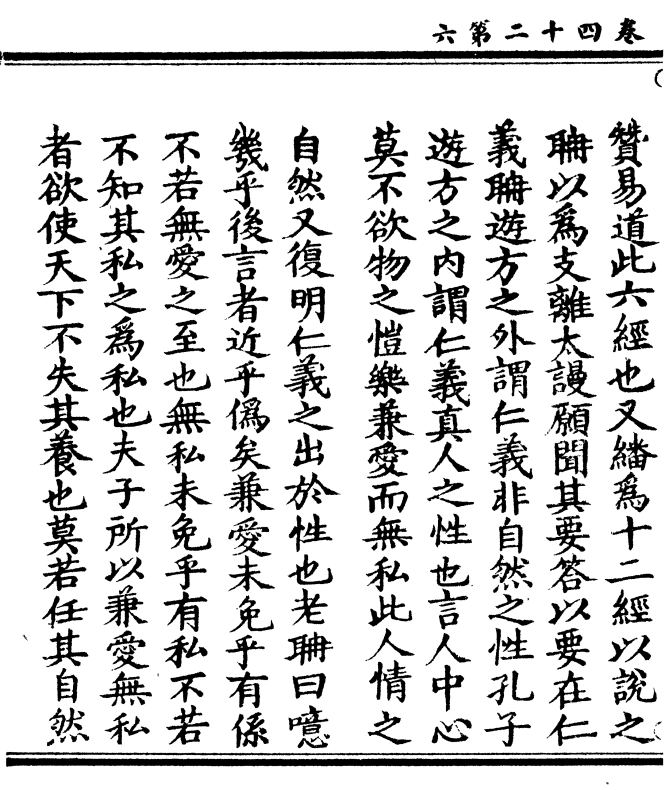 卷四十二第六
贊易道此六經也又繙爲十二經以說之
聃以爲支離太謾願聞其要答以要在仁
義聃遊方之外謂仁義非自然之性孔子
遊方之內謂仁義真人之性也言人中心
莫不欲物之愷樂兼愛而無私此人情之
自然又復明仁義之出於性也老聃曰噫
幾乎後言者近乎僞矣兼愛未免乎有係
不若無愛之至也無私未免乎有私不若
不知其私之爲私也夫子所以兼愛無私
者欲使天下不失其養也莫若任其自然